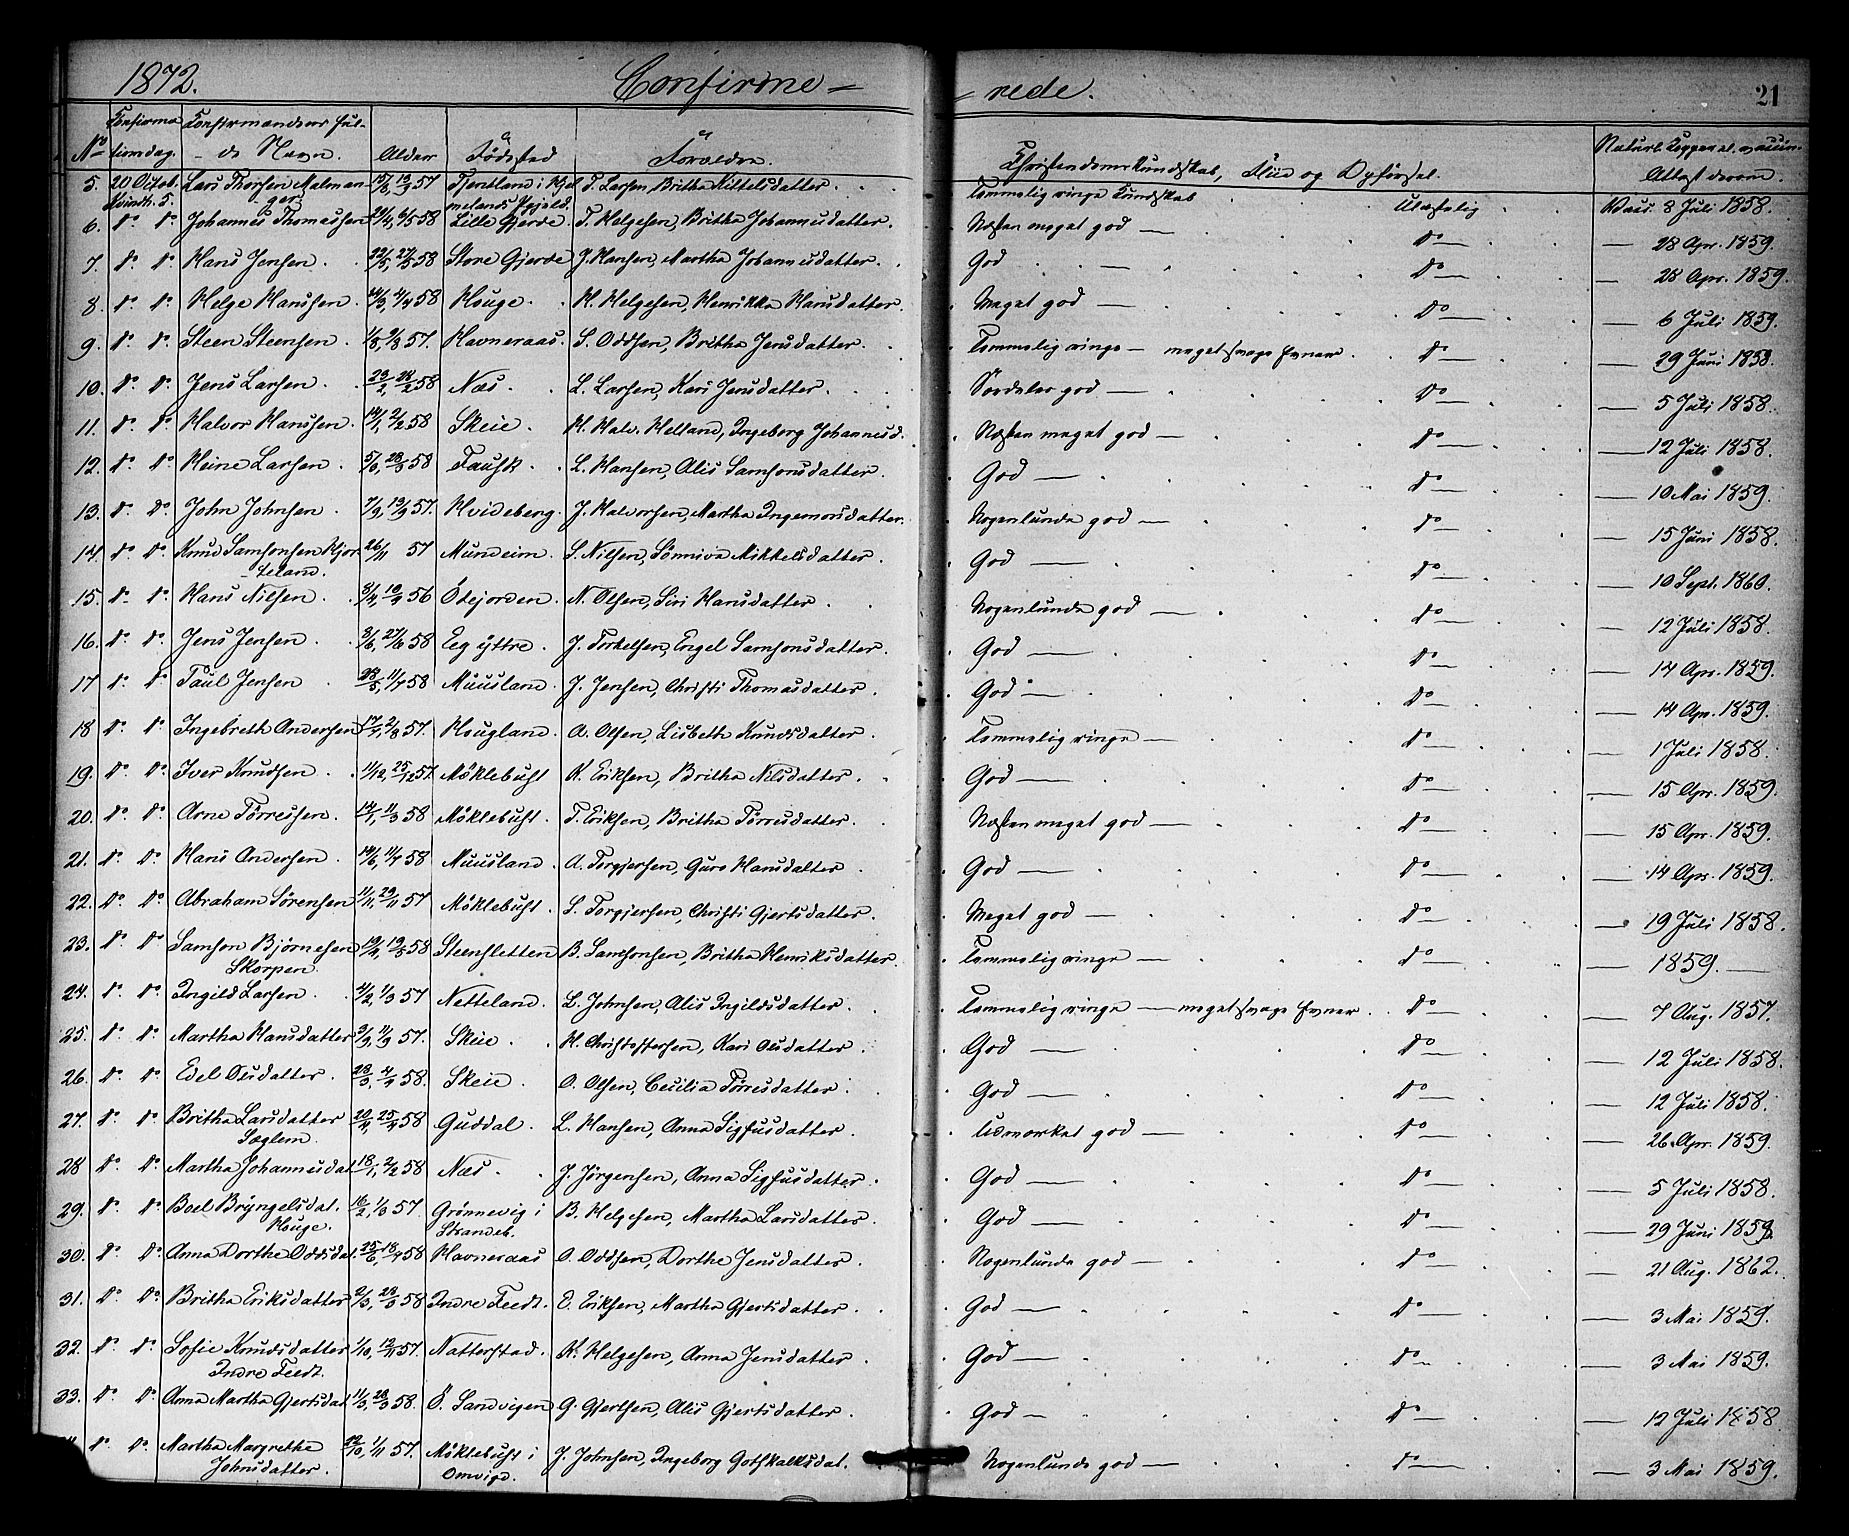 1872. Confirme- -rede. 21
No Confirmationsdag. Confirmandens fulde Navn. Alder Fødested Forældre. Christendoms Kundskab, Flid og Opførsel. Naturl. Kopper el. vaccin. Attest derom.
5. 20 Octob. Kvindh. S. Lars Thorsen Malmanger 57 Fjentland i T. Larsen, Britha Kittelsdatter. Temmelig ringe Kundskab Ulastelig Vacc. 8 Juli 1858.
6. do do Johannes Thomassen 58 Lille Gjerde. T. Helgesen, Britha Johannesdatter. Næsten meget god — do — 28 Apr. 1859.
7. do do Hans Jensen. 58 Store Gjerde J. Hansen, Martha Johannesdatter. God — do — 28 Apr. 1859.
8. do do Helge Hanssen. 58 Houge. H. Helgesen, Henrikka Hansdatter. Meget god — do — 6 Juli 1859.
9. do do Steen Steensen. 57. Havneraas. S. Oddsen, Britha Jensdatter. Temmelig ringe — meget svage Evner. do — 29 Juni 1858.
10. do do Jens Larsen. 58 Næs. L. Larsen, Kari Jensdatter. Særdeles god — do — 5 Juli 1858.
11. do do Halvor Hanssen. 14/1, 2/2 58 Skeie. H. Halv. Helland, Ingeborg Johannesd. Næsten meget god — do — 12 Juli 1858.
12. do do Heine Larsen. 58 Fausk. L. Hansen, Alis Samsonsdatter. God — do — 10 Mai 1859.
13. do do John Johnsen. 7/9, 13/9 57. Hvideberg. J. Halvorsen, Martha Ingemorsdatter. Nogenlunde god — do — 15 Juni 1858.
14. do do Knud Samsonsen Kjerleland. 26/11 57 Mundeim. S. Nilsen, Sønniva Mikkelsdatter. God — do — 10 Sept. 1860.
15. do do Hans Nilsen. 56 Ödejorden. N. Olsen, Siri Hansdatter. Nogenlunde god — do — 12 Juli 1858.
16. do do Jens Jensen. 58 Eeg ÿttre. J. Torkelsen, Engel Samsonsdatter. God — do — 14 Apr. 1859.
17 do do Paul Jensen 58 Muusland. J. Jensen, Christi Thomasdatter. God — do — 14 Apr. 1859.
18 do do Ingebreth Andersen 57. Hougland. A. Olsen, Lisbeth Knudsdatter. Temmelig ringe — do — 1 Juli 1858.
19. do do Iver Knudsen. 11/12, 25/12 57. Möklebust K. Eriksen, Britha Nilsdatter. God — do — 15 Apr. 1859.
20. do do Arne Tørressen. 14/1, 11/3 58 Möklebust. T. Eriksen, Britha Tørresdatter. Næsten meget god — do — 15 Apr. 1859.
21. do do Hans Andersen. 58 Muusland. A. Torgjersen, Guro Hansdatter. God — do — 14 Apr. 1859.
22. do do Abraham Sørensen 11/11, 29/11 57 Möklebust. S. Torgjersen, Christi Gjertsdatter. Meget god — do — 19 Juli 1858.
23. do do Samson Bjørnesen Skorpen. 58 Steensletten B. Samsonsen, Britha Henriksdatter. Temmelig ringe — do — 1859. —
24. do do Ingild Larsen. 57 Netteland. L. Johnsen, Alis Ingildsdatter. Temmelig ringe — meget svage Evner. do — 7 Aug. 1857.
25. do do Martha Hansdatter 57. Skeie. H. Christoffersen, Kari Olsdatter. God — do — 12 Juli 1858.
26. do do Edel Olsdatter. 58. Skeie. O. Olsen, Cecilia Tørresdatter. God — do — 12 Juli 1858.
27. do do Britha Larsdatter Sæglem. 20/4, 25/4 58 Guddal. L. Hansen, Anna Sigfusdatter. Udmærket god — do — 26 Apr. 1859.
28 do do Martha Johannesdat. 18/1, 2/2 58 Næs. J. Jörgensen, Anna Sigfusdatter. God — do — 5 Juli 1858.
29. do do Boel Bryngelsdat. Houge. 16/2, 1/3 57. Grönnevig i Strandeb. B. Helgesen, Martha Larsdatter. God — do — 29 Juni 1859.
30. do do Anna Dorthe Oddsdat. 58 Havneraas O. Oddsen, Dorthe Jensdatter. Nogenlunde god — do — 21 Aug. 1862.
31. do do Britha Eriksdatter 2/3, 28/3 58 Indre Feedt. E. Eriksen, Martha Gjertsdatter. God — do — 3 Mai 1859.
32. do do Sofie Knudsdatter Indre Feedt. 57. Natterstad. K. Helgesen, Anna Jensdatter. God — do — 3 Mai 1859.
33. do do Anna Martha Gjertsdat. 11/3, 28/3 58. Ö. Sandvigen G. Gjertsen, Alis Gjertsdatter. God — do — 12 Juli 1858
do do Martha Margrethe Johnsdatter. 57. Möklebust i Omvigd. J. Johnsen, Ingeborg Gotskalksdat. Nogenlunde god — do — 3 Mai 1859.